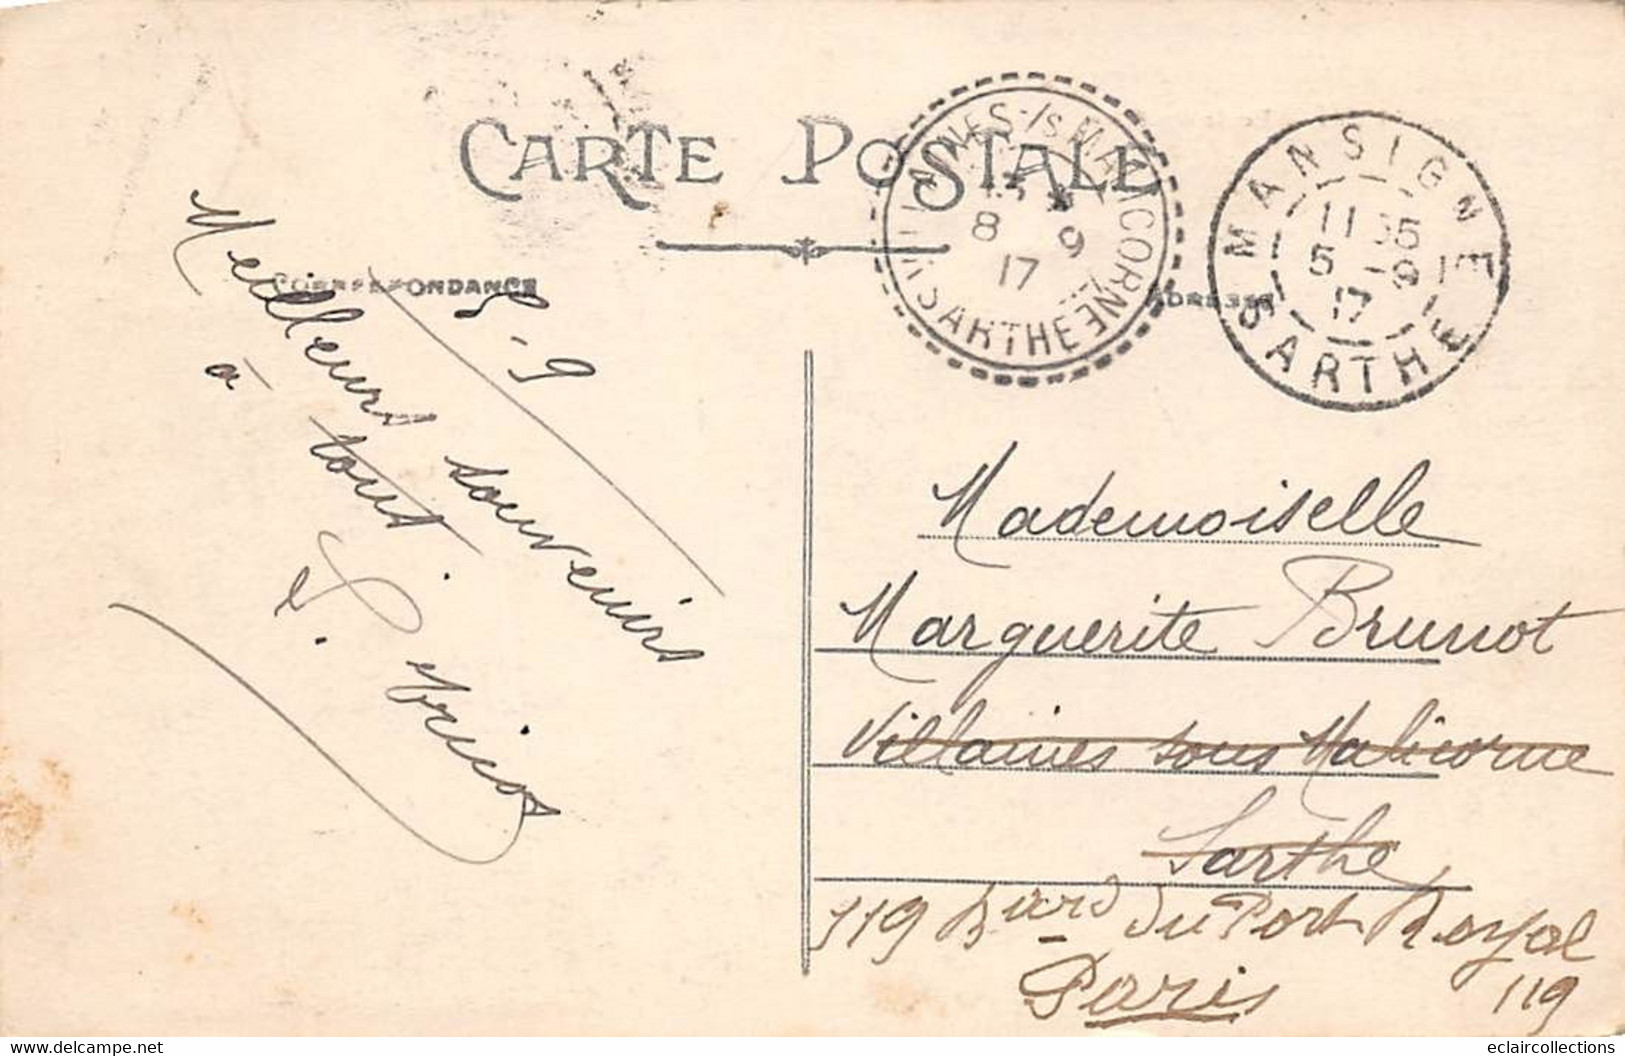 CARTE POSTALE
CORRESPONDANCE
ADRESSE
MANSIGNE
11 35
5 - 9
17
SARTHE
13
8 9
17
SARTHE
5-9
Meilleurs souvenirs
à tous.
Mademoiselle
Marguerite Brunot
Villaines sous Malicorne
Sarthe
119 Bard du Port Royal
Paris 119
www.delcampe.net
eclaircollections